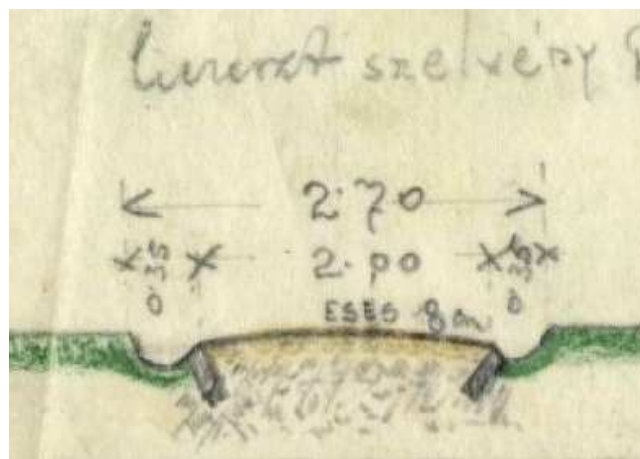 Kereszt szelvény
2.70
0.35 2.00 0.35
ESÉS 8 cm